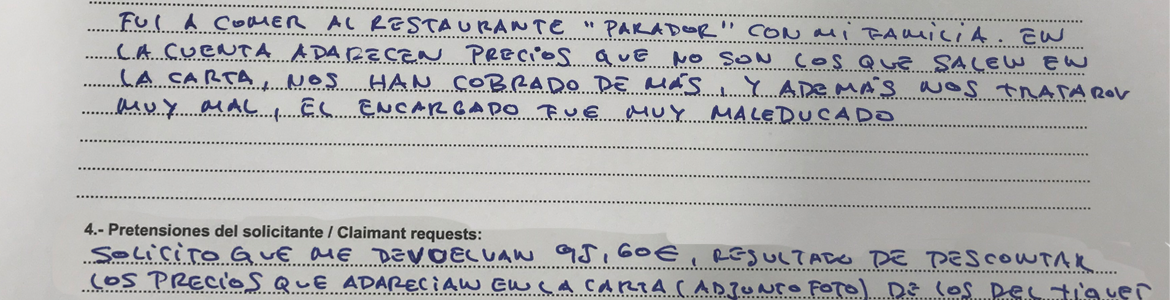 FUI A COMER AL RESTAURANTE "PARADOR" CON MI FAMILIA. EN
LA CUENTA APARECEN PRECIOS QUE NO SON LOS QUE SALEN EN
LA CARTA, NOS HAN COBRADO DE MÁS, Y ADEMÁS NOS TRATARON
MUY MAL, EL ENCARGADO FUE MUY MALEDUCADO
4.- Pretensiones del solicitante / Claimant requests:
SOLICITO QUE ME DEVUELVAN 95,60€, RESULTADO DE DESCONTAR
LOS PRECIOS QUE APARECIAN EN LA CARTA (ADJUNTO FOTO) DE LOS DEL TIQUET